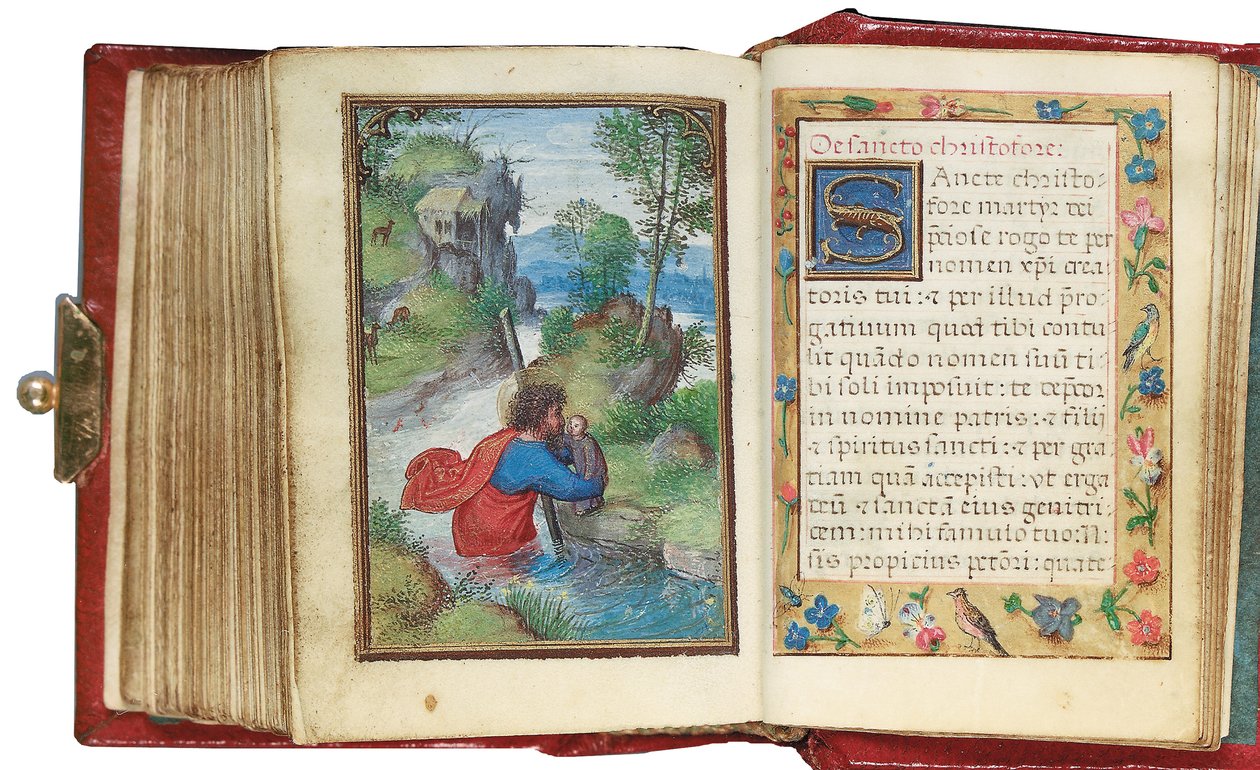 De sancto christofore:
SAncte christo-
fore martyr dei
p̄ciose rogo te per
nomen xp̄i crea-
toris tui: ⁊ per illud p̄ro-
gatiuum quod tibi contu-
lit quādo nomen suū ti-
bi soli imposuit: te dep̄cor
in nomine patris: ⁊ filij
⁊ spiritus sancti: ⁊ per gra-
tiam quā accepisti: vt erga
deū ⁊ sanctā eius genitri-
cem: mihi famulo tuo: N:
sis propicius pctōri: quate-